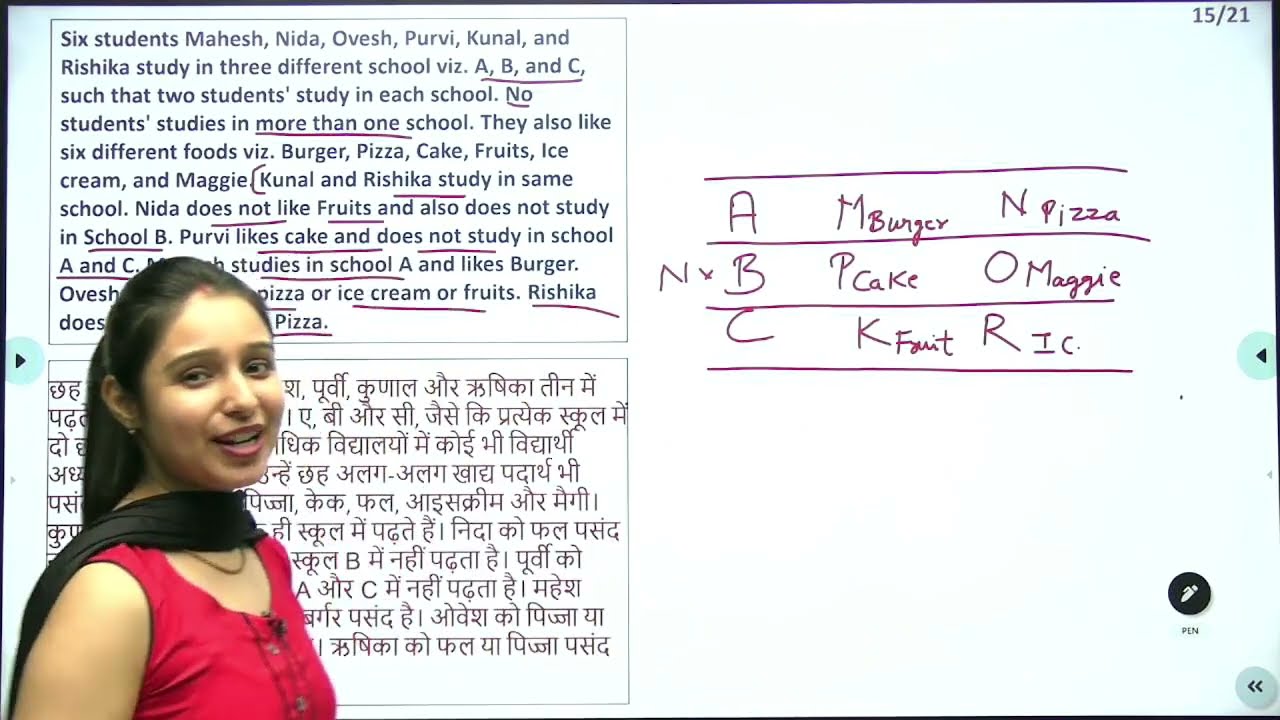 15/21
Six students Mahesh, Nida, Ovesh, Purvi, Kunal, and
Rishika study in three different school viz. A, B, and C,
such that two students' study in each school. No
students' studies in more than one school. They also like
six different foods viz. Burger, Pizza, Cake, Fruits, Ice
cream, and Maggie. Kunal and Rishika study in same
school. Nida does not like Fruits and also does not study
in School B. Purvi likes cake and does not study in school
A and C. studies in school A and likes Burger.
Ovesh pizza or ice cream or fruits. Rishika
does Pizza.
छह पूर्वी, कुणाल और ऋषिका तीन में
ए, बी और सी, जैसे कि प्रत्येक स्कूल में
दो विद्यालयों में कोई भी विद्यार्थी
उन्हें छह अलग-अलग खाद्य पदार्थ भी
पिज्जा, केक, फल, आइसक्रीम और मैगी।
ही स्कूल में पढ़ते हैं। निदा को फल पसंद
स्कूल B में नहीं पढ़ता है। पूर्वी को
A और C में नहीं पढ़ता है। महेश
बर्गर पसंद है। ओवेश को पिज्जा या
ऋषिका को फल या पिज्जा पसंद
A M Burger N Pizza
N × B P Cake O Maggie
C K Fruit R I C.
PEN